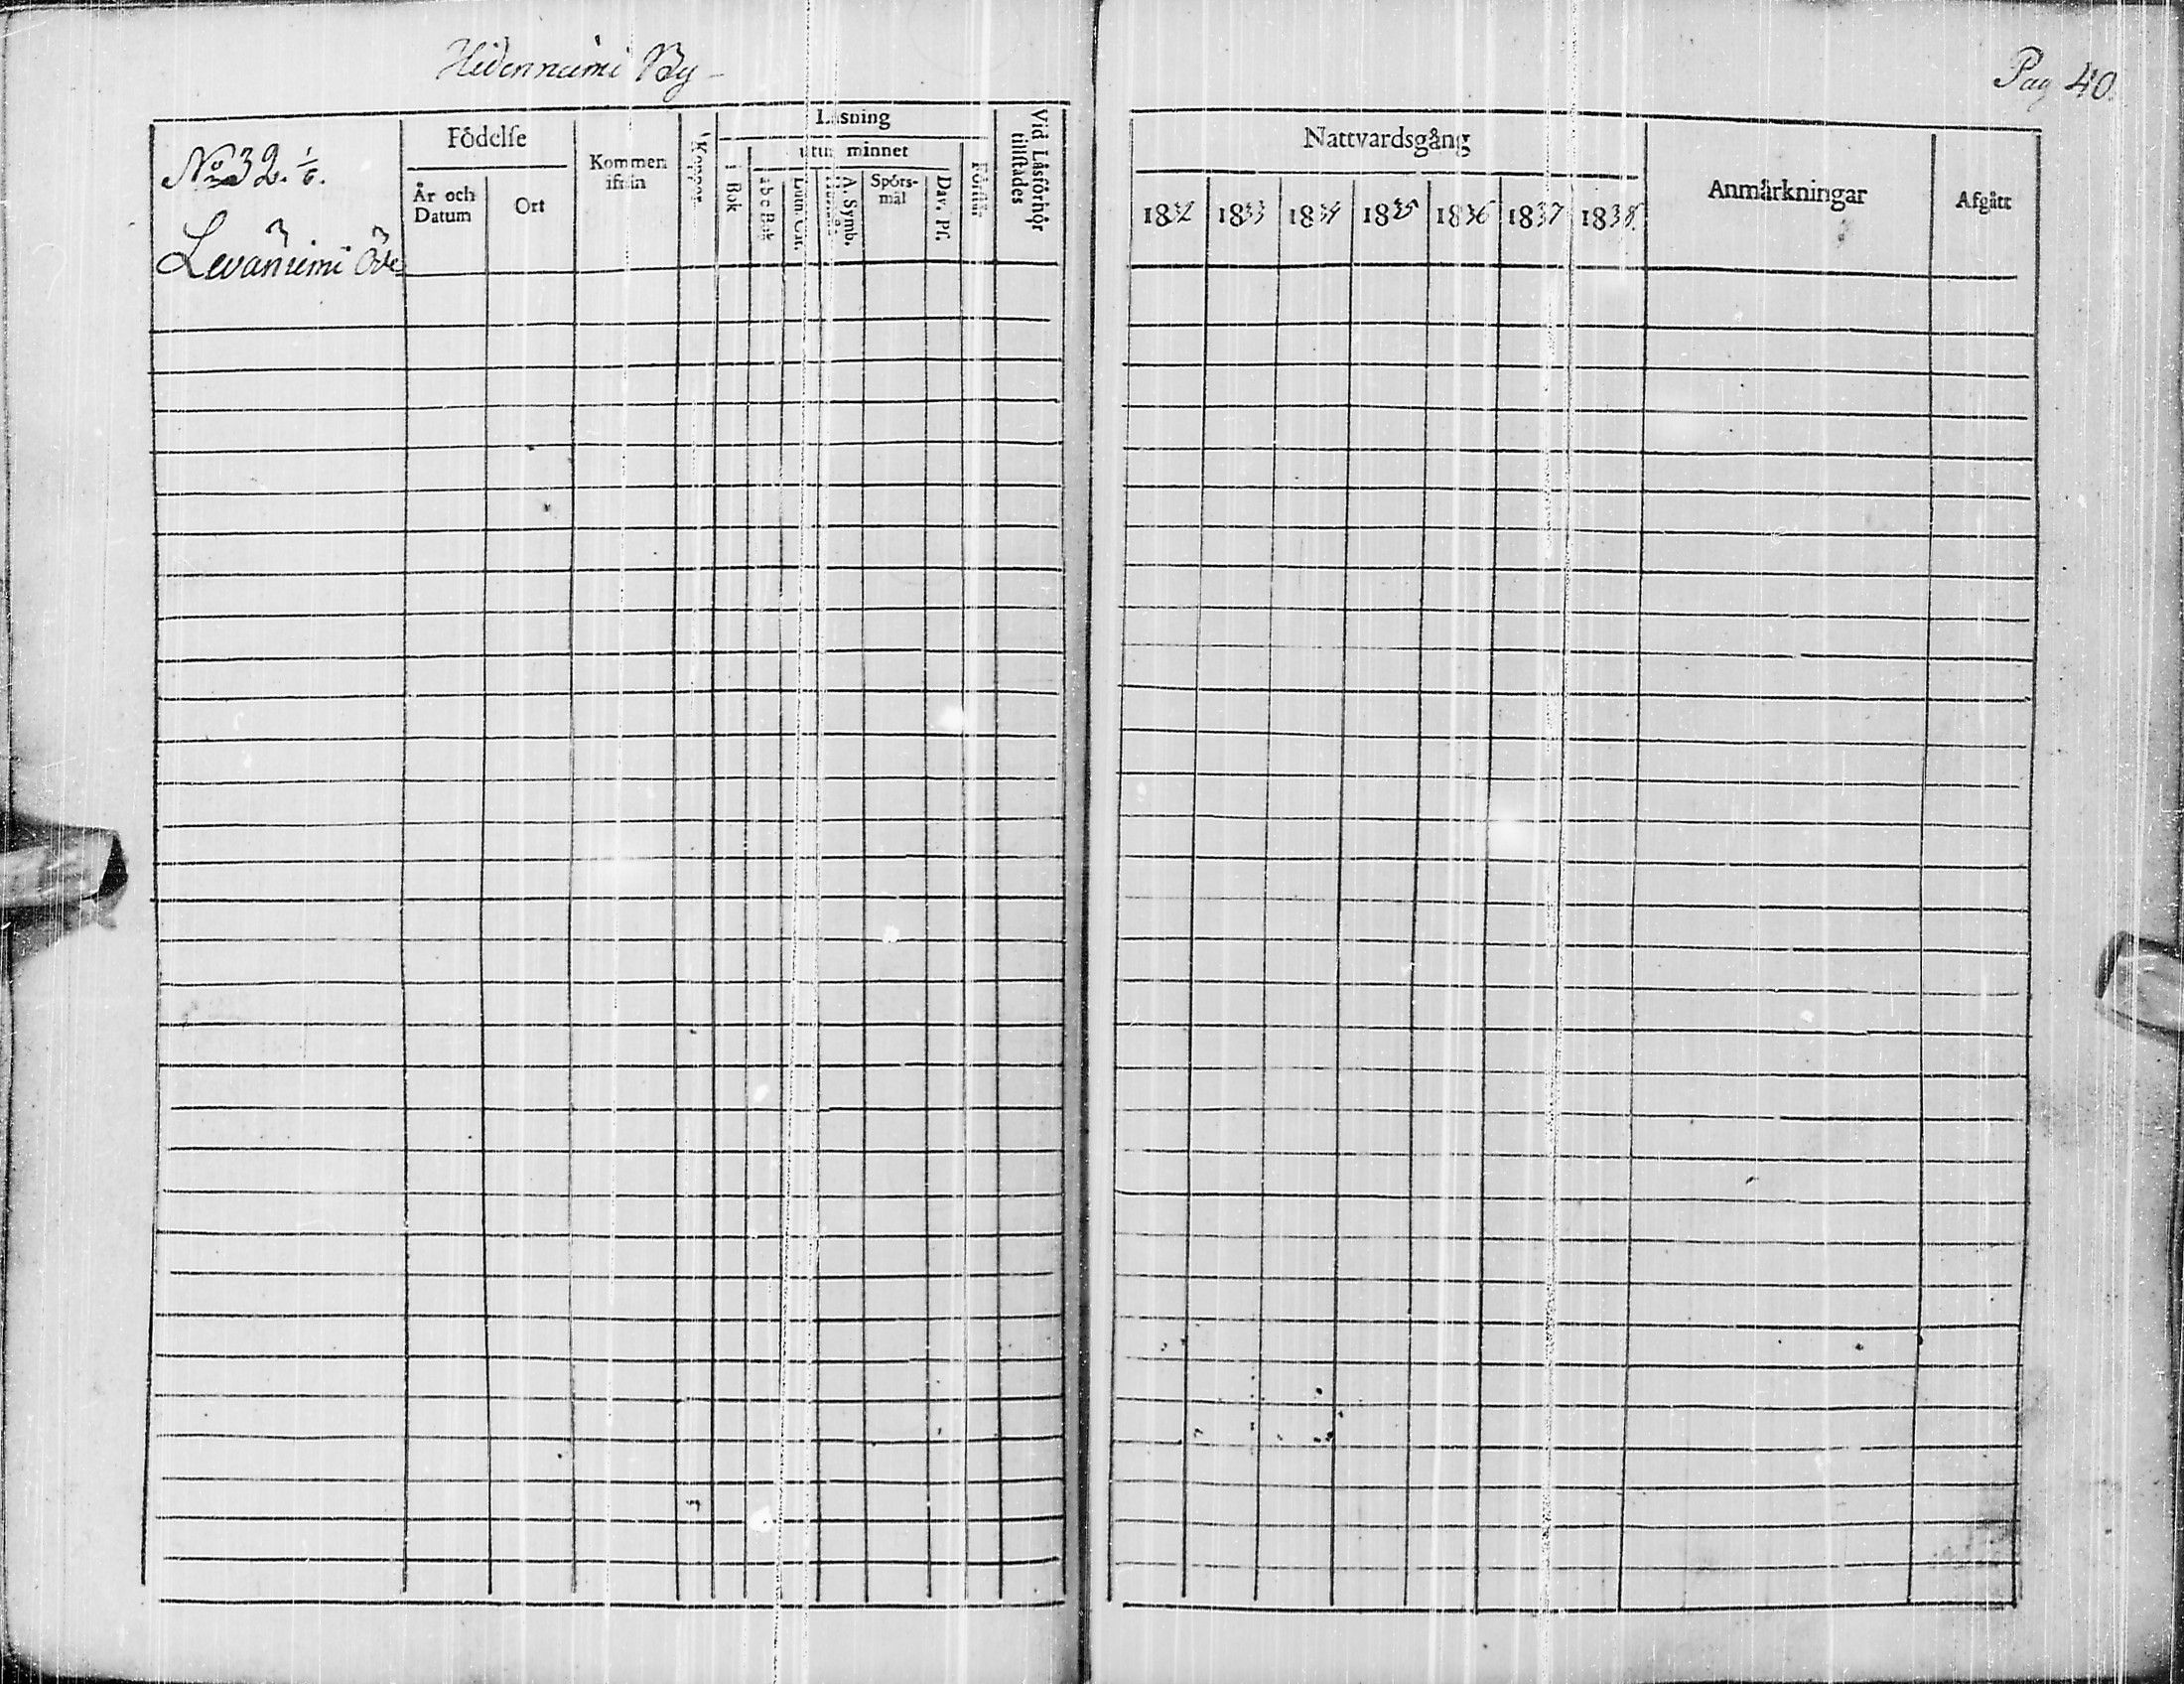 Hidenniemi By
Pag 40.
No 32. 1/6.
Leväniemi Öde
Födelse
År och Datum
Ort
Kommen ifrån
Koppor
Läsning
i Bok
utur minnet
a b c Bok
Luth. Cat.
A. Symb.
Spörs-mål
Dav. Ps.
Förstår
Vid Läsförhör tillstådes
Nattvardsgång
1832 1833 1834 1835 1836 1837 1838.
Anmärkningar
Afgått